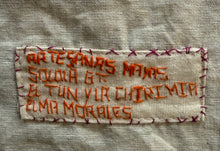 ARTESANAS MAYAS
SOLOLA GT
EL TUN Y LA CHIRIMIA
ELMA MORALES